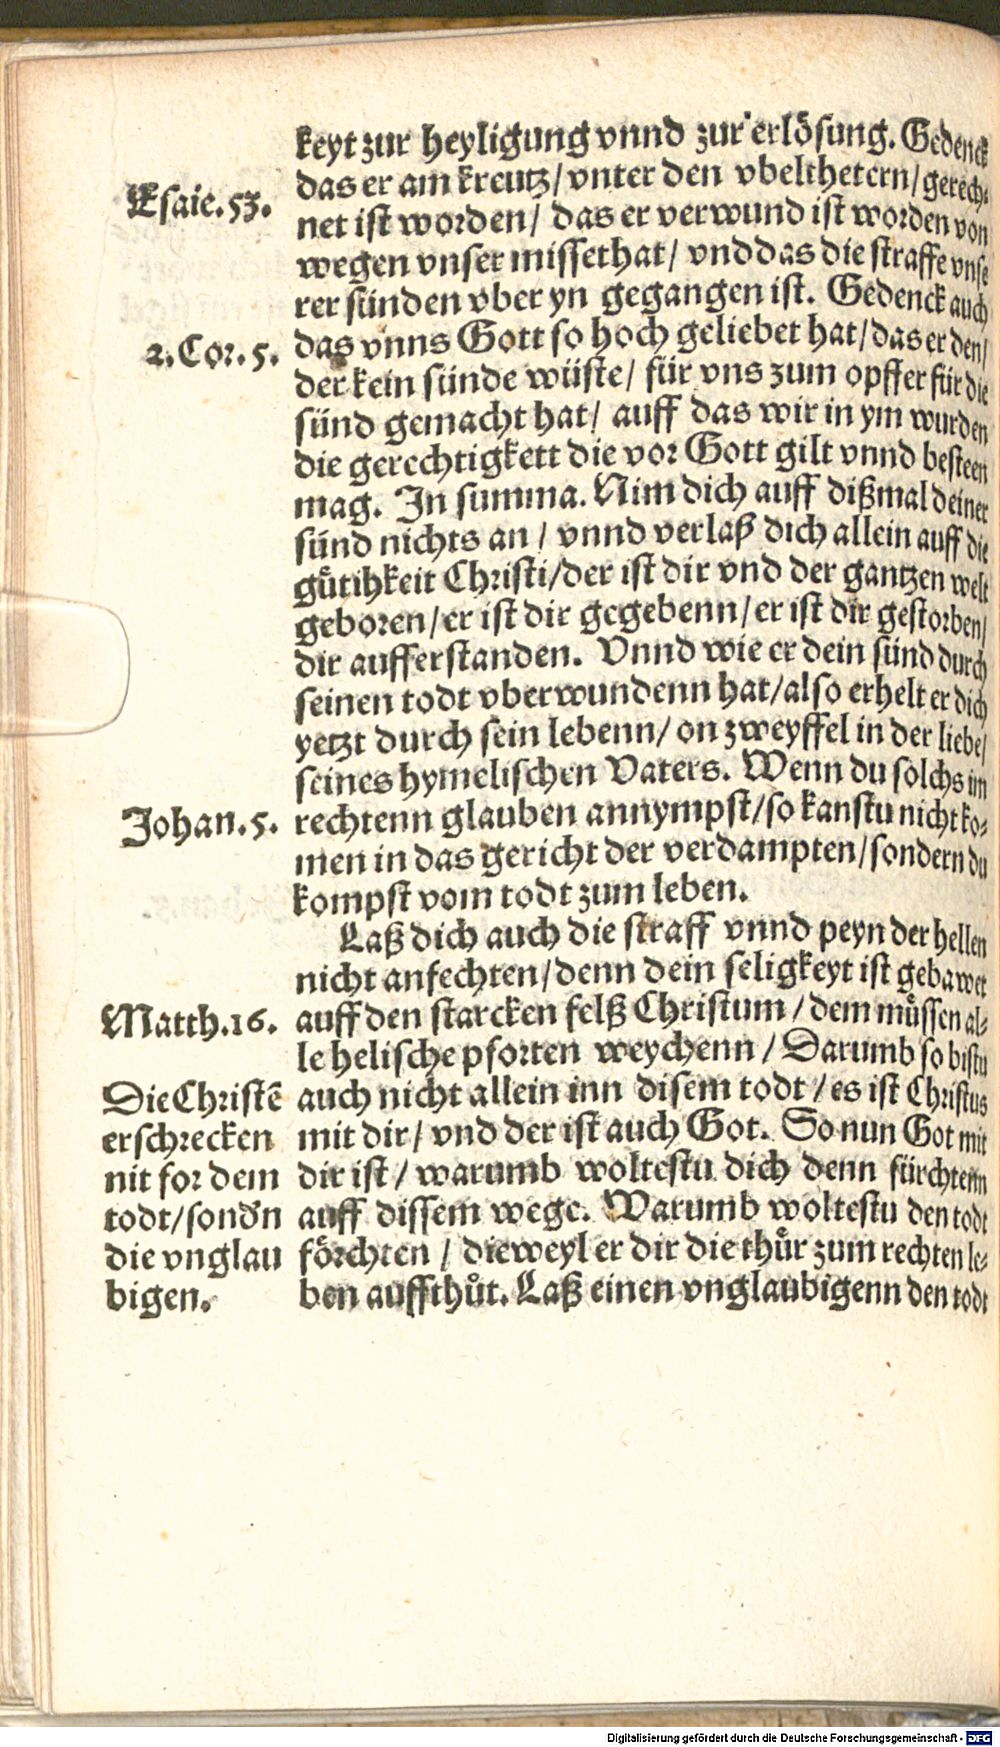 keyt zur heyligung vnnd zur erlösung. Gedenck
das er am kreutz/ vnter den vbelthetern/ gerech⸗
Esaie. 53.
net ist worden/ das er verwund ist worden von
wegen vnser missethat/ vnd das die straffe vnse
rer sünden vber yn gegangen ist. Gedenck auch
2. Cor. 5.
das vnns Gott so hoch geliebet hat/ das er den/
der kein sünde wüste/ für vns zum opffer für die
sünd gemacht hat/ auff das wir in ym wurden
die gerechtigkett die vor Gott gilt vnnd besteen
mag. In summa. Nim dich auff dißmal deiner
sünd nichts an / vnnd verlaß dich allein auff die
gůtihkeit Christi/ der ist dir vnd der gantzen welt
geboren/ er ist dir gegebenn/ er ist dir gestorben/
dir aufferstanden. Vnnd wie er dein sünd durch
seinen todt vberwundenn hat/ also erhelt er dich
yetzt durch sein lebenn/ on zweyffel in der liebe/
seines hymelischen Vaters. Wenn du solchs im
Johan. 5.
rechtenn glauben annympst/ so kanstu nicht ko⸗
men in das gericht der verdampten/ sondern du
kompst vom todt zum leben.
Laß dich auch die straff vnnd peyn der hellen
nicht anfechten/ denn dein seligkeyt ist gebawet
Matth. 16.
auff den starcken felß Christum / dem müssen al⸗
le helische pforten weychenn / Darumb so bistu
Die Christē
erschrecken
nit for dem
todt/ sond'n
die vnglau
bigen.
auch nicht allein inn disem todt / es ist Christus
mit dir/ vnd der ist auch Got. So nun Got mit
dir ist / warumb woltestu dich denn fürchtenn
auff dissem wege. Warumb woltestu den todt
förchten / dieweyl er dir die thůr zum rechten le⸗
ben auffthůt. Laß einen vnglaubigenn den todt
Digitalisierung gefördert durch die Deutsche Forschungsgemeinschaft - DFG